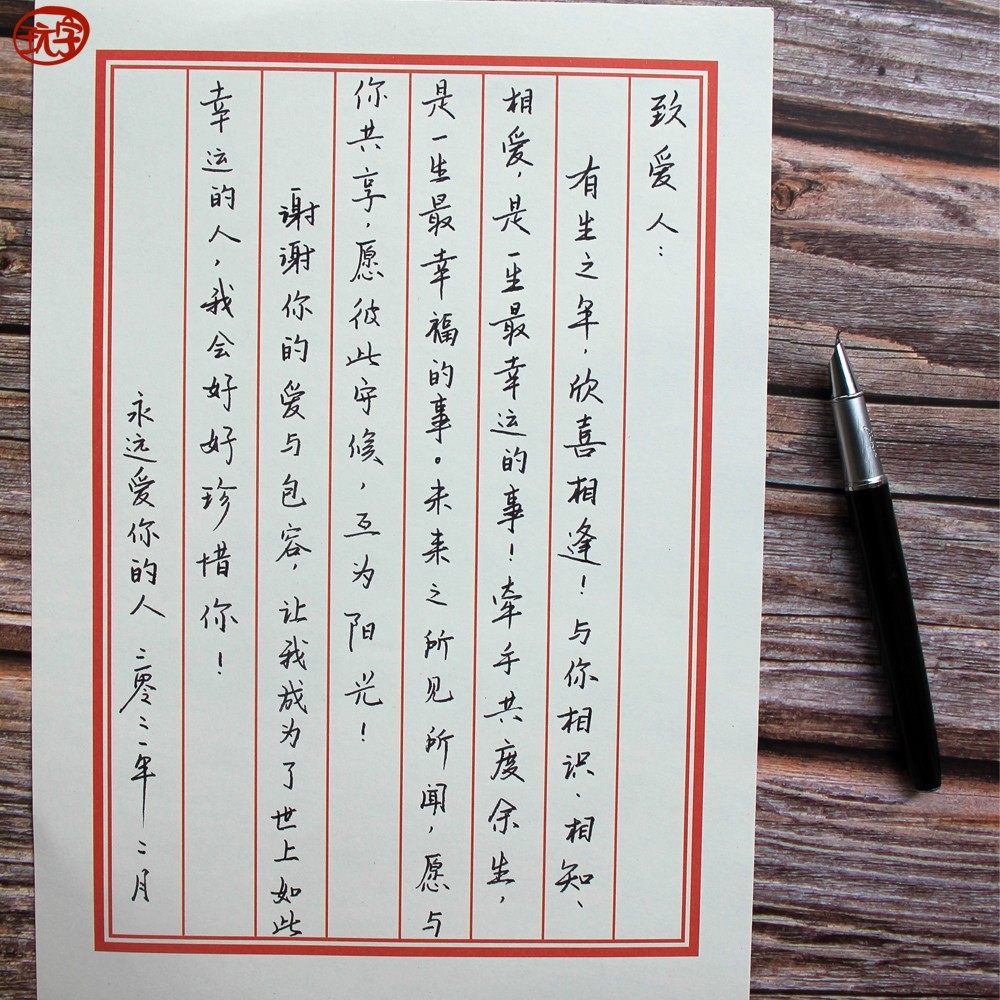 致爱人：
有生之年，欣喜相逢！与你相识、相知、
相爱，是一生最幸运的事！牵手共度余生，
是一生最幸福的事。未来之所见所闻，愿与
你共享，愿彼此守候，互为阳光！
谢谢你的爱与包容，让我成为了世上如此
幸运的人，我会好好珍惜你！
永远爱你的人 二零二一年二月
玩字